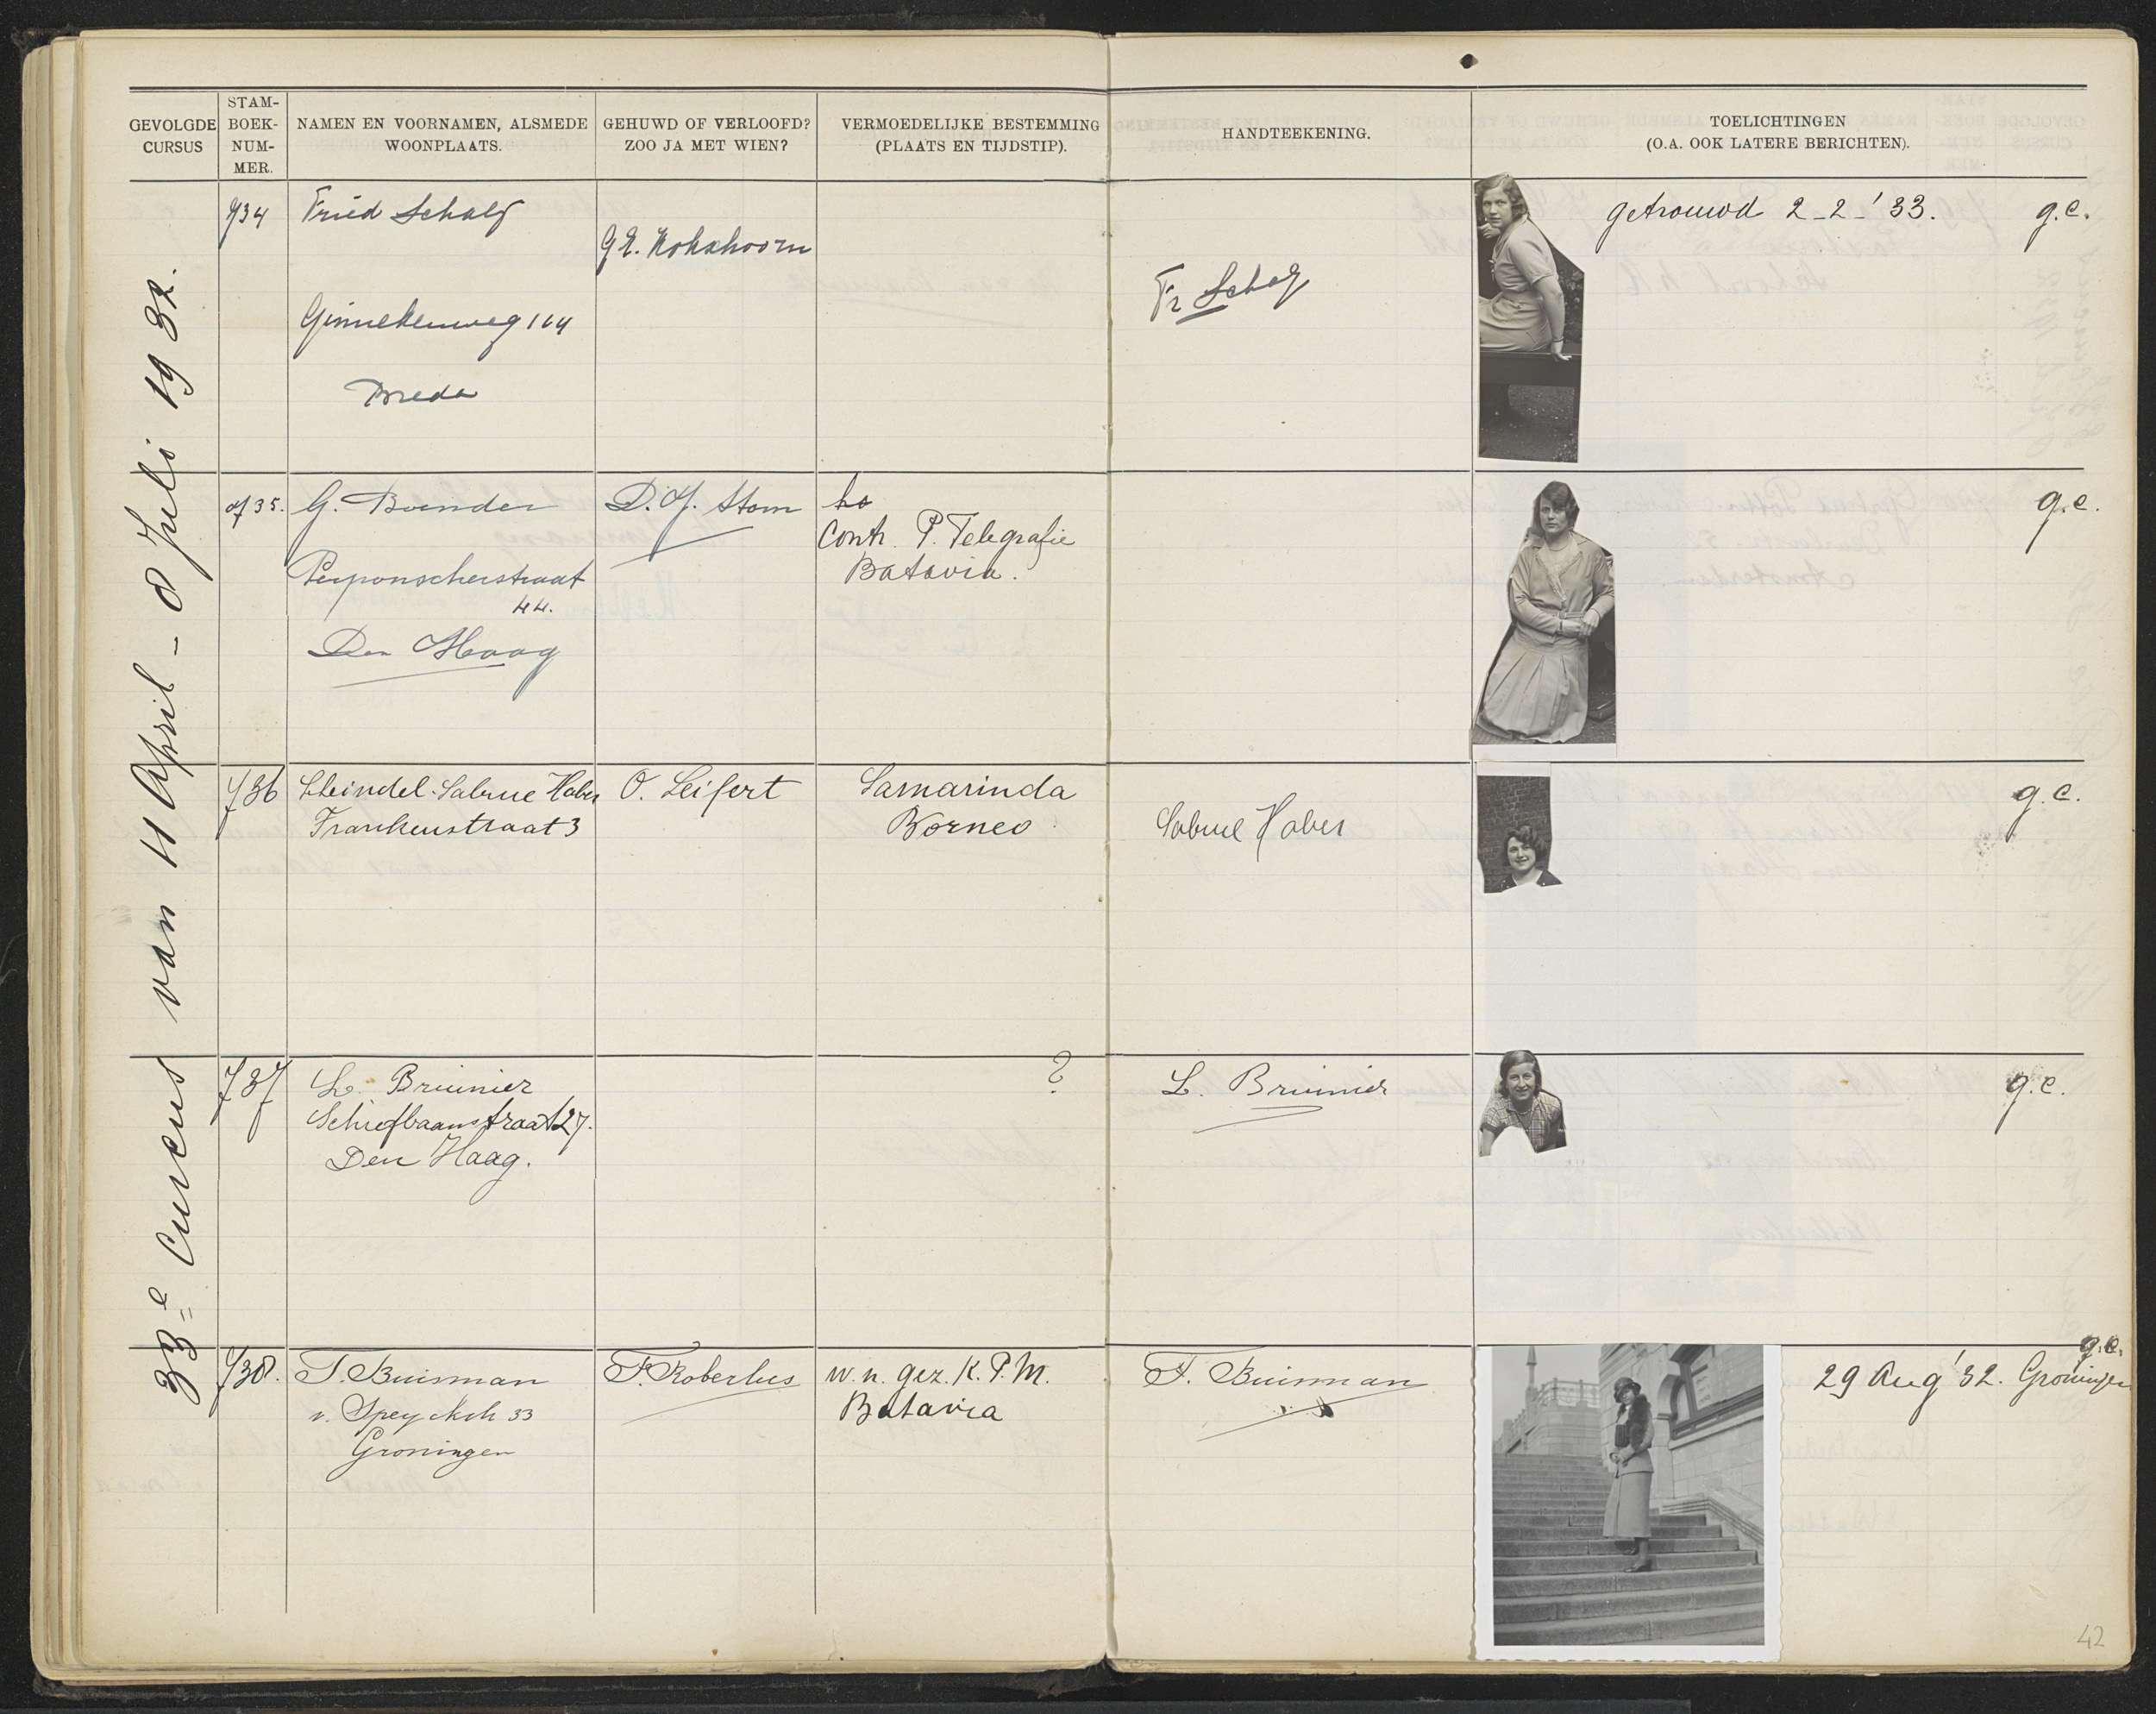 GEVOLGDE CURSUS
STAM-BOEK-NUM-MER.
NAMEN EN VOORNAMEN, ALSMEDE WOONPLAATS.
GEHUWD OF VERLOOFD? ZOO JA MET WIEN?
VERMOEDELIJKE BESTEMMING (PLAATS EN TIJDSTIP).
HANDTEEKENING.
TOELICHTINGEN (O.A. OOK LATERE BERICHTEN).
33e Cursus van 11 April - 8 Juli 1932.
734
Fried Schalij
Ginnekenweg 164
Breda
G.E. Kokshoorn
Fr Schalij
getrouwd 2-2-'33.
g.c.
735.
G. Buinder
Perponscherstraat
44.
Den Haag
D.J. Stom
Contr. P. Telegrafie
Batavia.
g.c.
736
Scheindel-Sabine Haber
Frankenstraat 3
O. Leifert
Samarinda
Borneo
Sabine Haber
g.c.
737
L. Bruinier
Schiefbaanstraat 27.
Den Haag.
?
L. Bruinier
g.c.
738.
F. Buisman
v. Speykstr 33
Groningen
F. Robertus
w.n. gez. K.P.M.
Batavia
F. Buisman
g.c.
29 Aug '32. Groningen
42